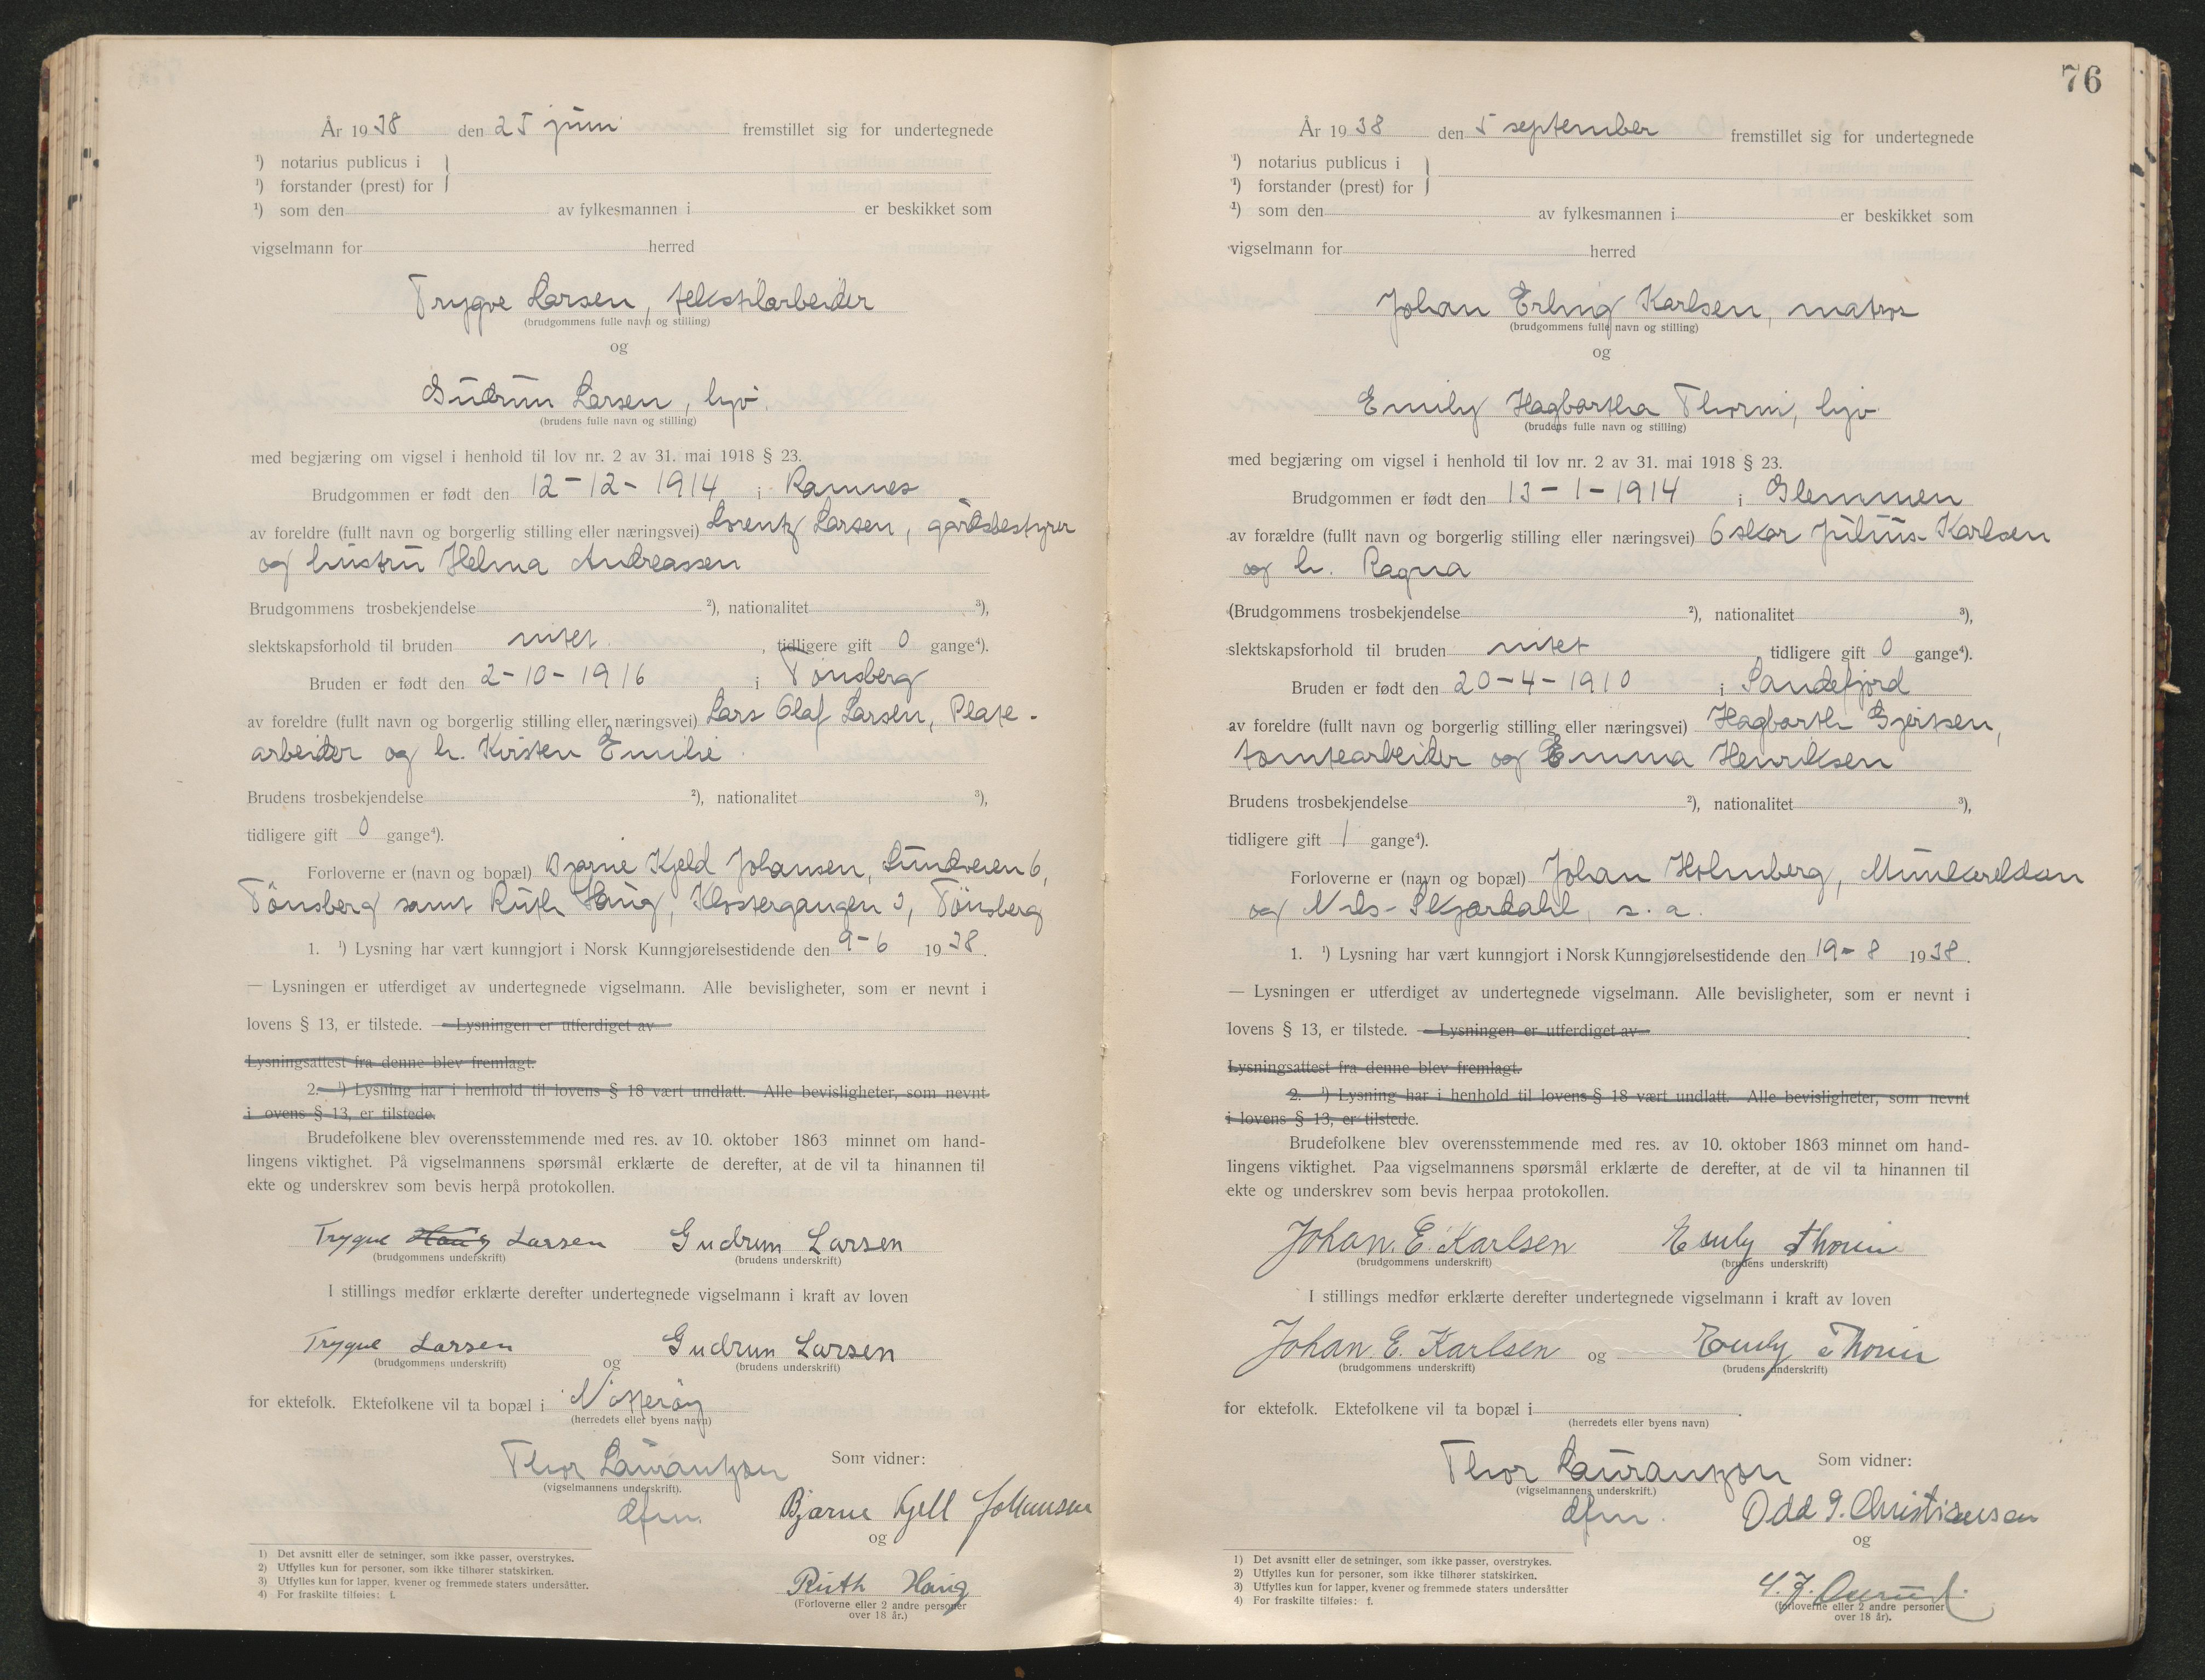 År 1938 den 25 juni fremstillet sig for undertegnede
¹) notarius publicus i
¹) forstander (prest) for
¹) som den av fylkesmannen i er beskikket som
vigselmann for herred
Trygve Larsen, tekstilarbeider
(brudgommens fulle navn og stilling)
og
Gudrun Larsen, hjv.
(brudens fulle navn og stilling)
med begjæring om vigsel i henhold til lov nr. 2 av 31. mai 1918 § 23.
Brudgommen er født den 12-12-1914 i Ramnes
av foreldre (fullt navn og borgerlig stilling eller næringsvei) Lorentz Larsen, gårdsbestyrer
og hustru Helma Andreassen
Brudgommens trosbekjendelse ²), nationalitet ³),
slektskapsforhold til bruden intet. , tidligere gift 0 gange⁴).
Bruden er født den 2-10-1916 i Tønsberg
av foreldre (fullt navn og borgerlig stilling eller næringsvei) Lars Olaf Larsen, Plate-
arbeider og h. Kirsten Emilie.
Brudens trosbekjendelse ²), nationalitet ³),
tidligere gift 0 gange⁴).
Forloverne er (navn og bopæl) Bjarne Kjeld Johansen, Lundveien 6,
Tønsberg samt Ruth Haug, Klostergangen 3, Tønsberg
1. ¹) Lysning har vært kunngjort i Norsk Kunngjørelsestidende den 9-6 1938.
— Lysningen er utferdiget av undertegnede vigselmann. Alle bevisligheter, som er nevnt i
lovens § 13, er tilstede. — Lysningen er utferdiget av
Lysningsattest fra denne blev fremlagt.
2. ¹) Lysning har i henhold til lovens § 18 vært undlatt. Alle bevisligheter, som nevnt
i ovens § 13, er tilstede.
Brudefolkene blev overensstemmende med res. av 10. oktober 1863 minnet om hand-
lingens viktighet. På vigselmannens spørsmål erklærte de derefter, at de vil ta hinannen til
ekte og underskrev som bevis herpå protokollen.
Trygve Haug Larsen Gudrun Larsen
(brudgommens underskrift) (brudens underskrift)
I stillings medfør erklærte derefter undertegnede vigselmann i kraft av loven
Trygve Larsen og Gudrun Larsen
(brudgommens underskrift) (brudens underskrift)
for ektefolk. Ektefolkene vil ta bopæl i Nøtterøy
(herredets eller byens navn)
Thor Laurantzon Som vidner:
(vigselmannens underskrift).
dfm. Bjarne Kjell Johansen
og
Ruth Haug
(Forloverne eller 2 andre personer
over 18 år.)
1) Det avsnitt eller de setninger, som ikke passer, overstrykes.
2) Utfylles kun for personer, som ikke tilhører statskirken.
3) Utfylles kun for lapper, kvener og fremmede staters undersåtter.
4) For fraskilte tilføies: f.
76
År 1938 den 5 september fremstillet sig for undertegnede
¹) notarius publicus i
¹) forstander (prest) for
¹) som den av fylkesmannen i er beskikket som
vigselmann for herred
Johan Erling Karlsen, matros
(brudgommens fulle navn og stilling)
og
Emily Hagbartha Thorin, hjv.
(brudens fulle navn og stilling)
med begjæring om vigsel i henhold til lov nr. 2 av 31. mai 1918 § 23.
Brudgommen er født den 13-1-1914 i Glemmen
av forældre (fullt navn og borgerlig stilling eller næringsvei) Oskar Julius Karlsen
og h. Ragna
(Brudgommens trosbekjendelse ²), nationalitet ³),
slektskapsforhold til bruden intet , tidligere gift 0 gange⁴).
Bruden er født den 20-4-1910 i Sandefjord
av foreldre (fullt navn og borgerlig stilling eller næringsvei) Hagbarth Gjertsen,
tomtearbeider og Emma Henriksen
Brudens trosbekjendelse ²), nationalitet ³),
tidligere gift 1 gange⁴).
Forloverne er (navn og bopæl) Johan Holmberg,
og Nils Skjærdahl, s. a.
1. ¹) Lysning har vært kunngjort i Norsk Kunngjørelsestidende den 19-8 1938.
— Lysningen er utferdiget av undertegnede vigselmann. Alle bevisligheter, som er nevnt i
lovens § 13, er tilstede. — Lysningen er utferdiget av .
Lysningsattest fra denne blev fremlagt.
2. ¹) Lysning har i henhold til lovens § 18 vært undlatt. Alle bevisligheter, som nevnt
i lovens § 13, er tilstede.
Brudefolkene blev overensstemmende med res. av 10. oktober 1863 minnet om hand-
lingens viktighet. Paa vigselmannens spørsmål erklærte de derefter, at de vil ta hinannen til
ekte og underskrev som bevis herpaa protokollen.
Johan. E. Karlsen Emily Thorin
(brudgommens underskrift) (brudens underskrift)
I stillings medfør erklærte derefter undertegnede vigselmann i kraft av loven
Johan. E. Karlsen og Emily Thorin
(brudgommens underskrift) (brudens underskrift)
for ektefolk. Ektefolkene vil ta bopæl i .
(herredets eller byens navn)
Thor Laurantzon Som vidner:
(vigselmannens underskrift.)
dfm. Odd G. Christiansen
og
(forloverne eller 2 andre personer
over 18 år).
1) Det avsnitt eller de setninger, som ikke passer, overstrykes.
2) Utfylles kun for personer, som ikke tilhører statskirken.
3) Utfylles kun for lapper, kvener og fremmede staters undersåtter
4) For fraskilte tilføies: f.